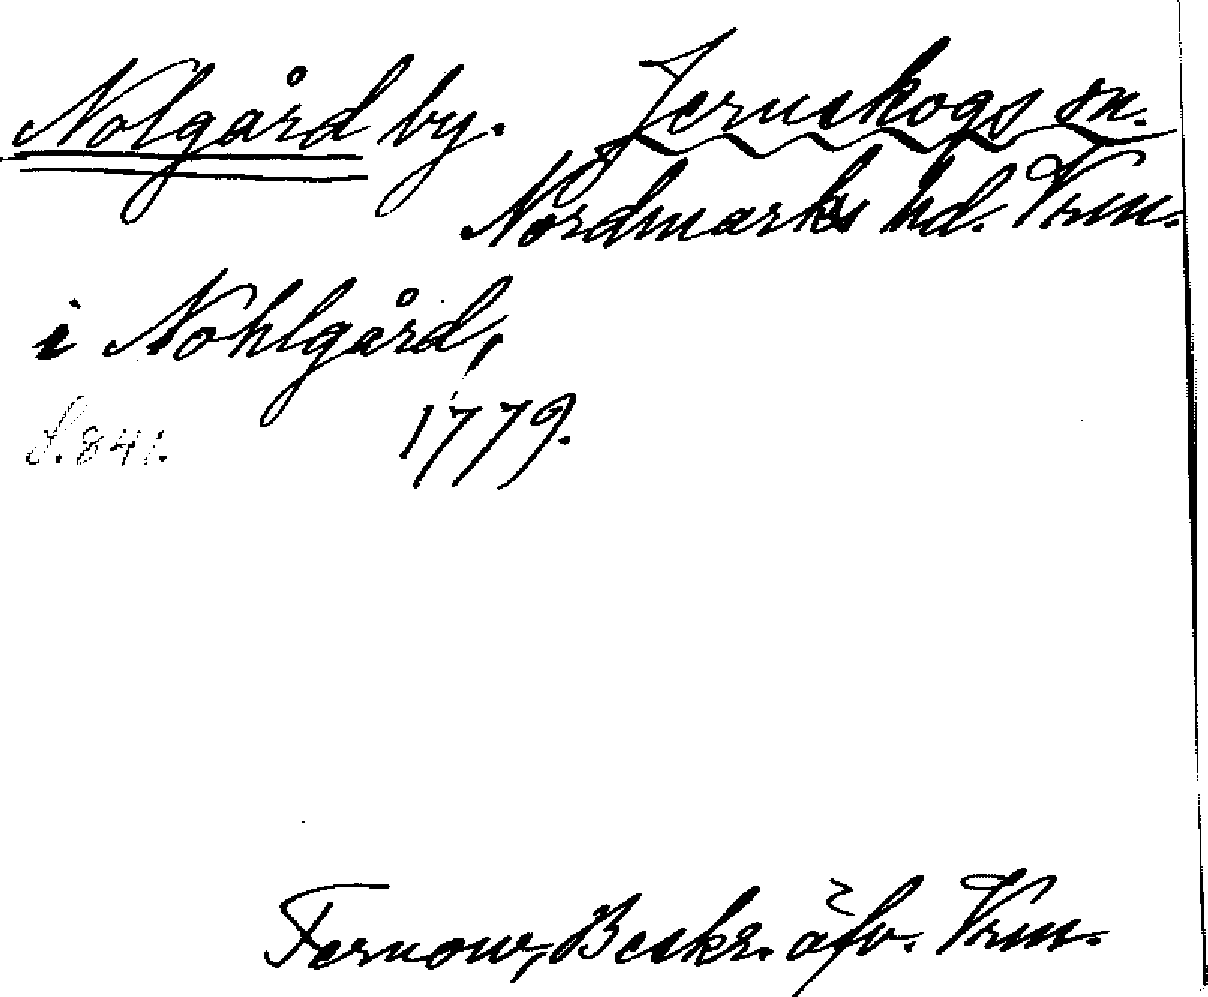 Nolgård by. Jernskogs sn.
Nordmarks hd. Vrm.
i Nohlgård,
S. 841. 1779.
Fernow, Beskr. äfv. Vrm.